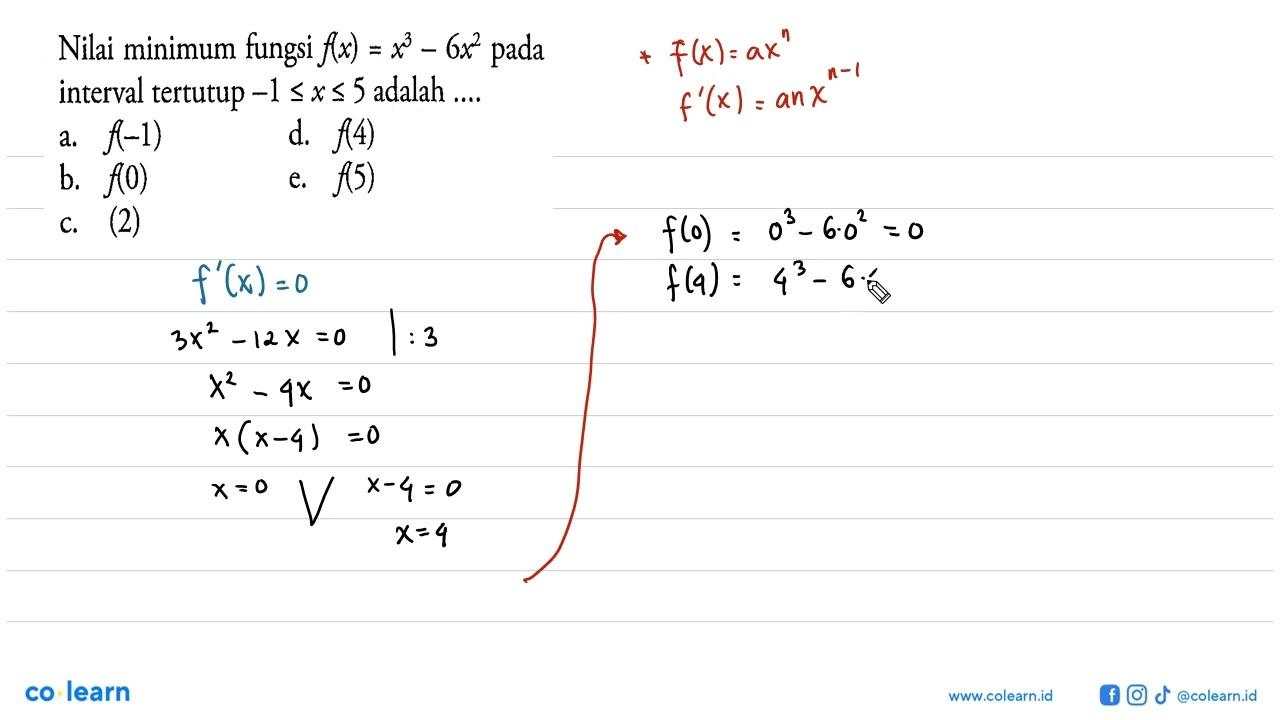 Nilai minimum fungsi f(x) = x³ – 6x² pada
interval tertutup –1 ≤ x ≤ 5 adalah ....
a. f(–1)
b. f(0)
c. (2)
d. f(4)
e. f(5)
* f(x) = ax^n
f'(x) = anx^(n-1)
f'(x) = 0
3x² - 12x = 0 | : 3
x² - 4x = 0
x(x-4) = 0
x = 0 V x-4 = 0
x = 4
f(0) = 0³ - 6·0² = 0
f(4) = 4³ - 6·
co learn
www.colearn.id
@colearn.id